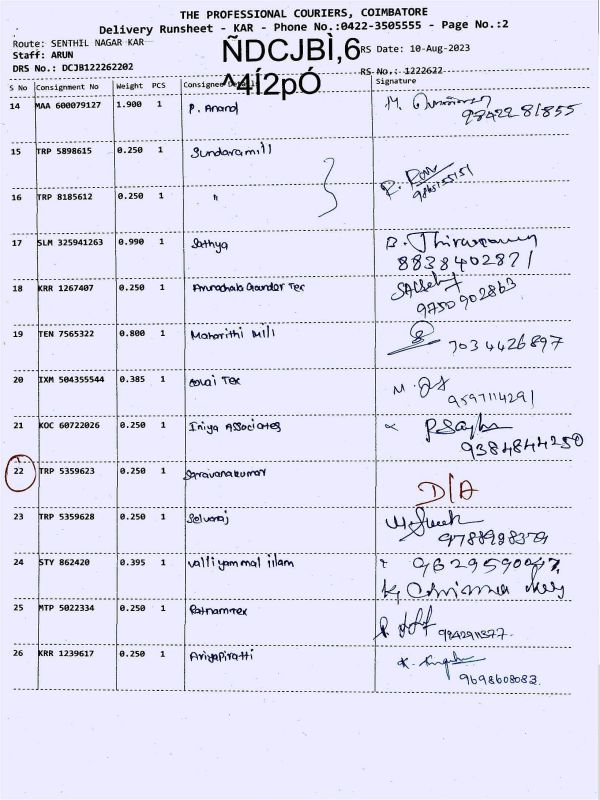 THE PROFESSIONAL COURIERS, COIMBATORE
Delivery Runsheet - KAR - Phone No.:0422-3505555 - Page No.:2
Route: SENTHIL NAGAR KAR ÑDCJBÌ,6 RS Date: 10-Aug-2023
Staff: ARUN
DRS No.: DCJB122262202 ^4Í2pÓ RS No.: 1222622
S No Consignment No Weight PCS Consignee Details Signature
14 MAA 600079127 1.900 1 P. Anand M.
9842281855
15 TRP 5898615 0.250 1 Sundaramill
16 TRP 8185612 0.250 1 "
17 SLM 325941263 0.990 1 Sathya B.
8838402871
18 KRR 1267407 0.250 1 Arunachala Gounder Tex
9750902863
19 TEN 7565322 0.800 1 Mill 7034426897
20 IXM 504355544 0.385 1 Tex M.
9597114291
21 KOC 60722026 0.250 1 Iniya Associates
9384844250
22 TRP 5359623 0.250 1 Saravanakumar
D/A
23 TRP 5359628 0.250 1 Selvaraj
9788998379
24 STY 862420 0.395 1 Valliyammal illam
25 MTP 5022334 0.250 1 Ratnamtex
26 KRR 1239617 0.250 1 Ariyapiratti K.
9698608083